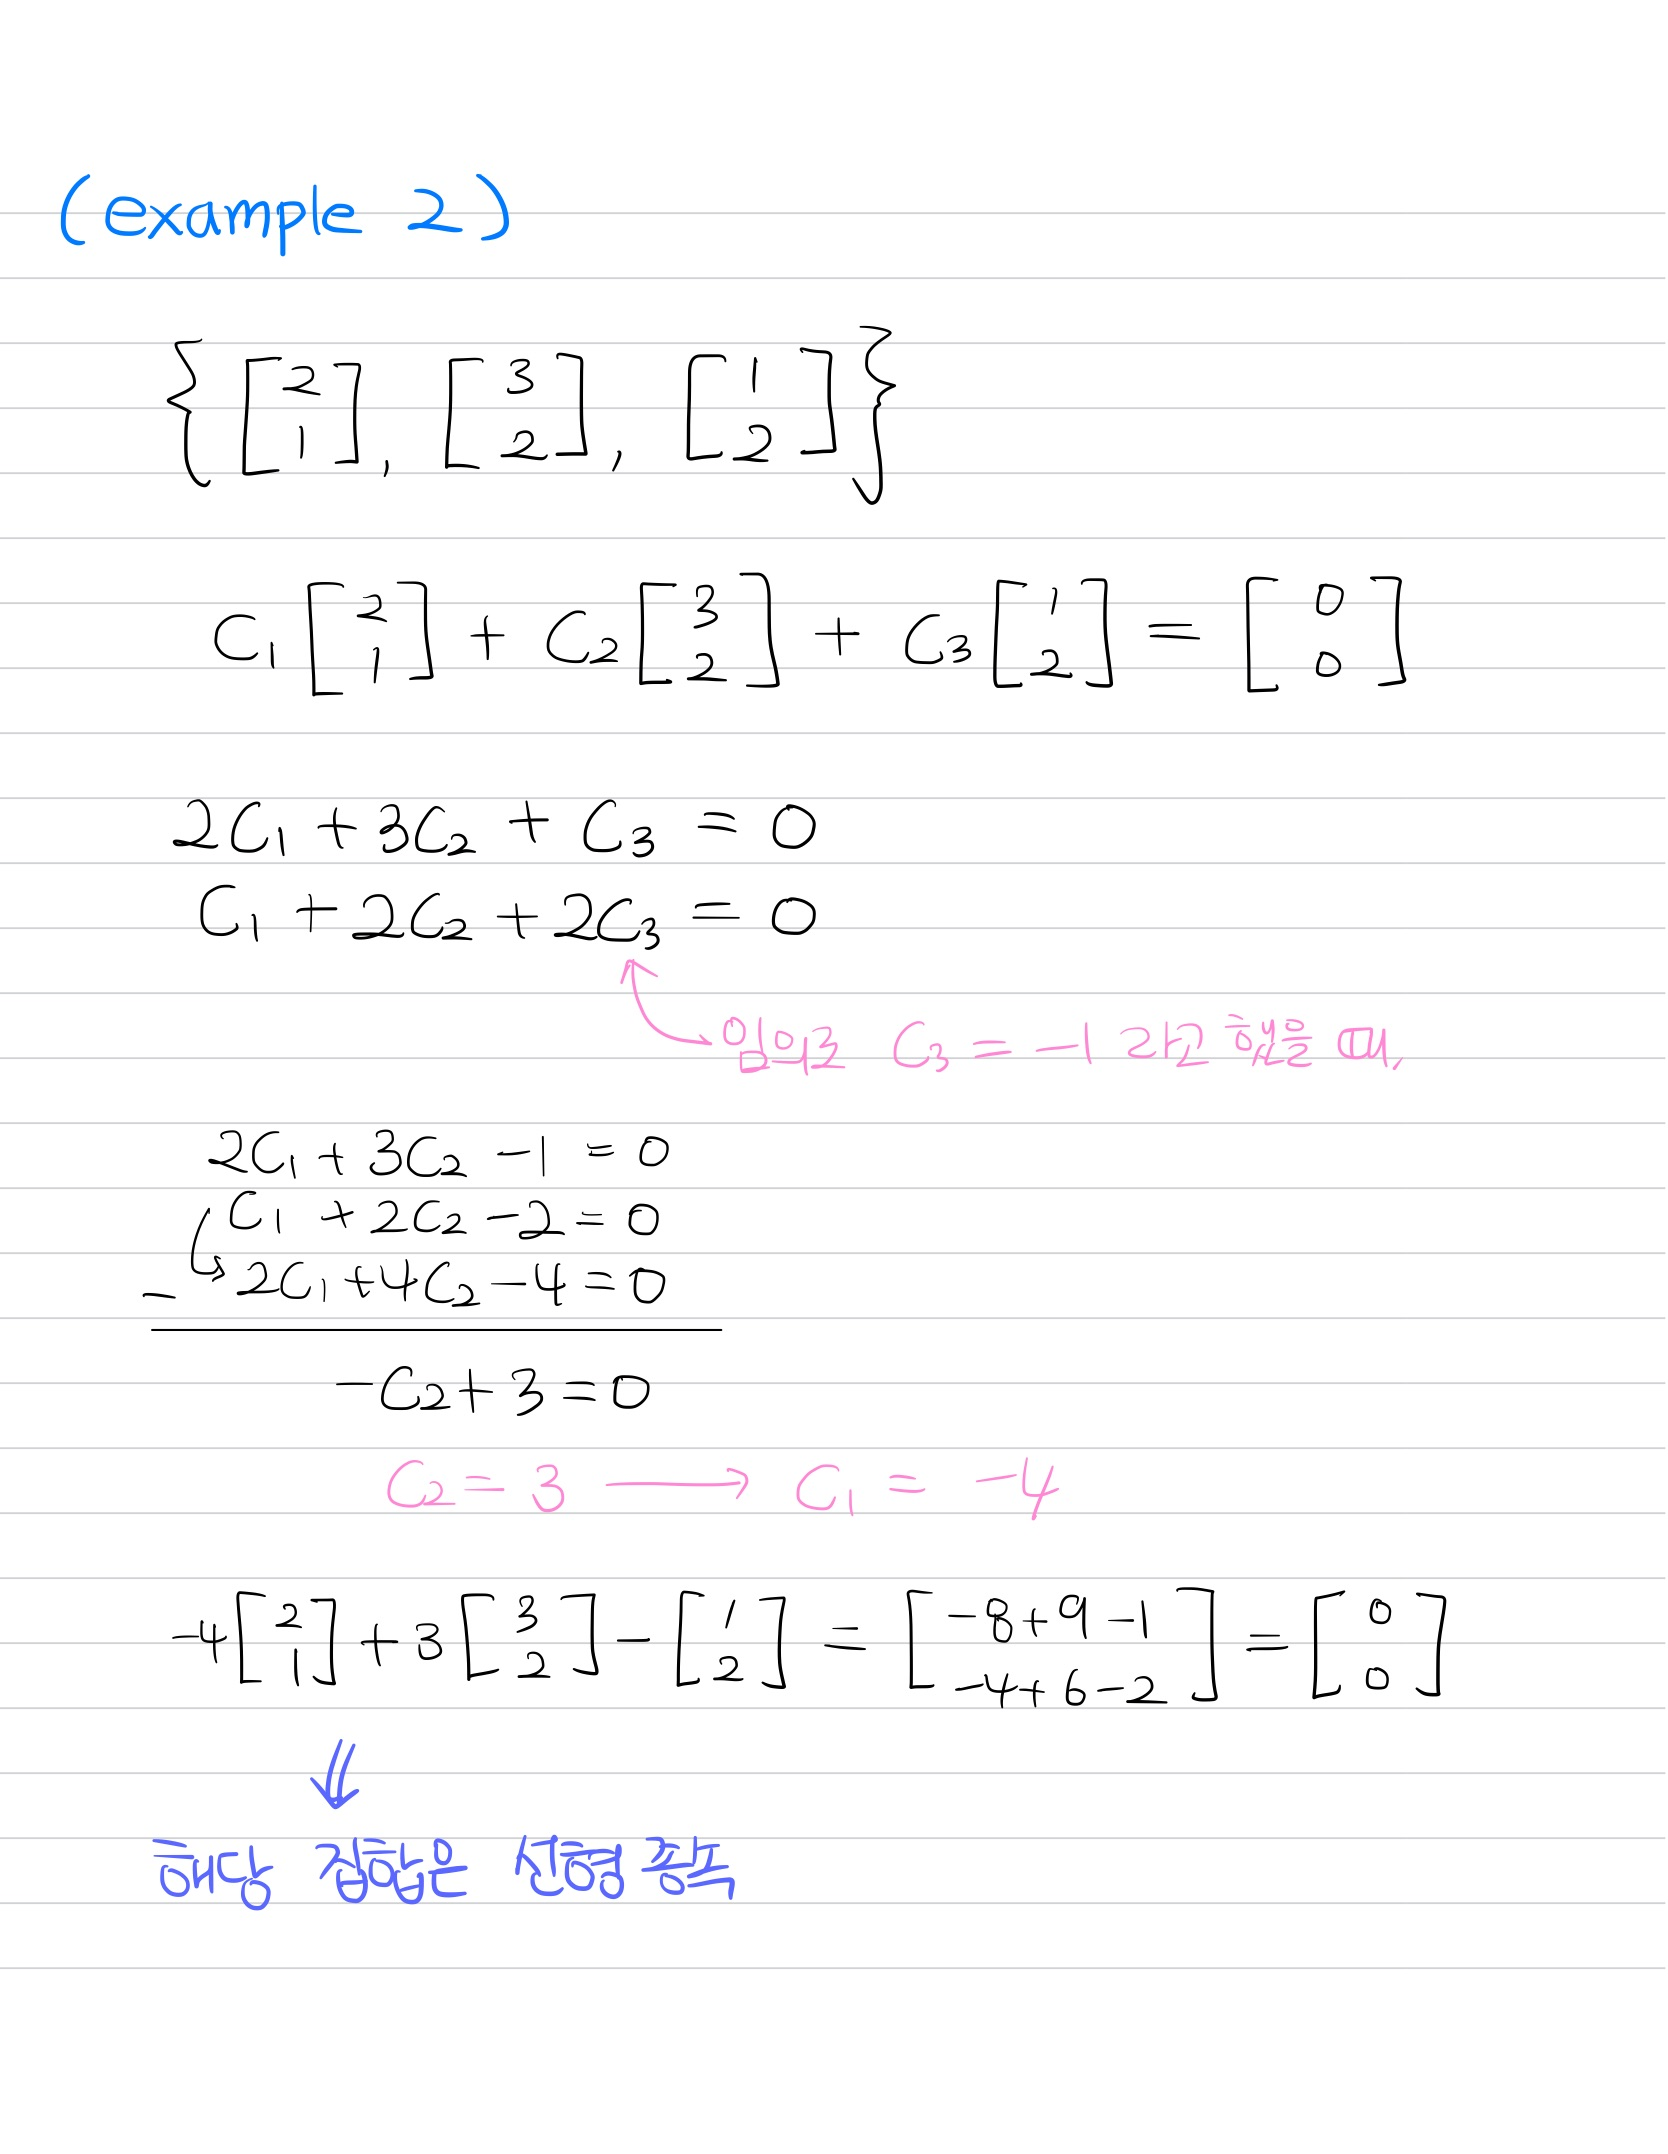 (example 2)
{[2 1], [3 2], [1 2]}
C₁[2 1] + C₂[3 2] + C₃[1 2] = [0 0]
2C₁ + 3C₂ + C₃ = 0
C₁ + 2C₂ + 2C₃ = 0
임의로 C₃ = -1 라고 했을 때,
2C₁ + 3C₂ - 1 = 0
C₁ + 2C₂ - 2 = 0
- 2C₁ + 4C₂ - 4 = 0
-C₂ + 3 = 0
C₂ = 3 → C₁ = -4
-4[2 1] + 3[3 2] - [1 2] = [-8+9-1 -4+6-2] = [0 0]
⇓
해당 집합은 선형 종속